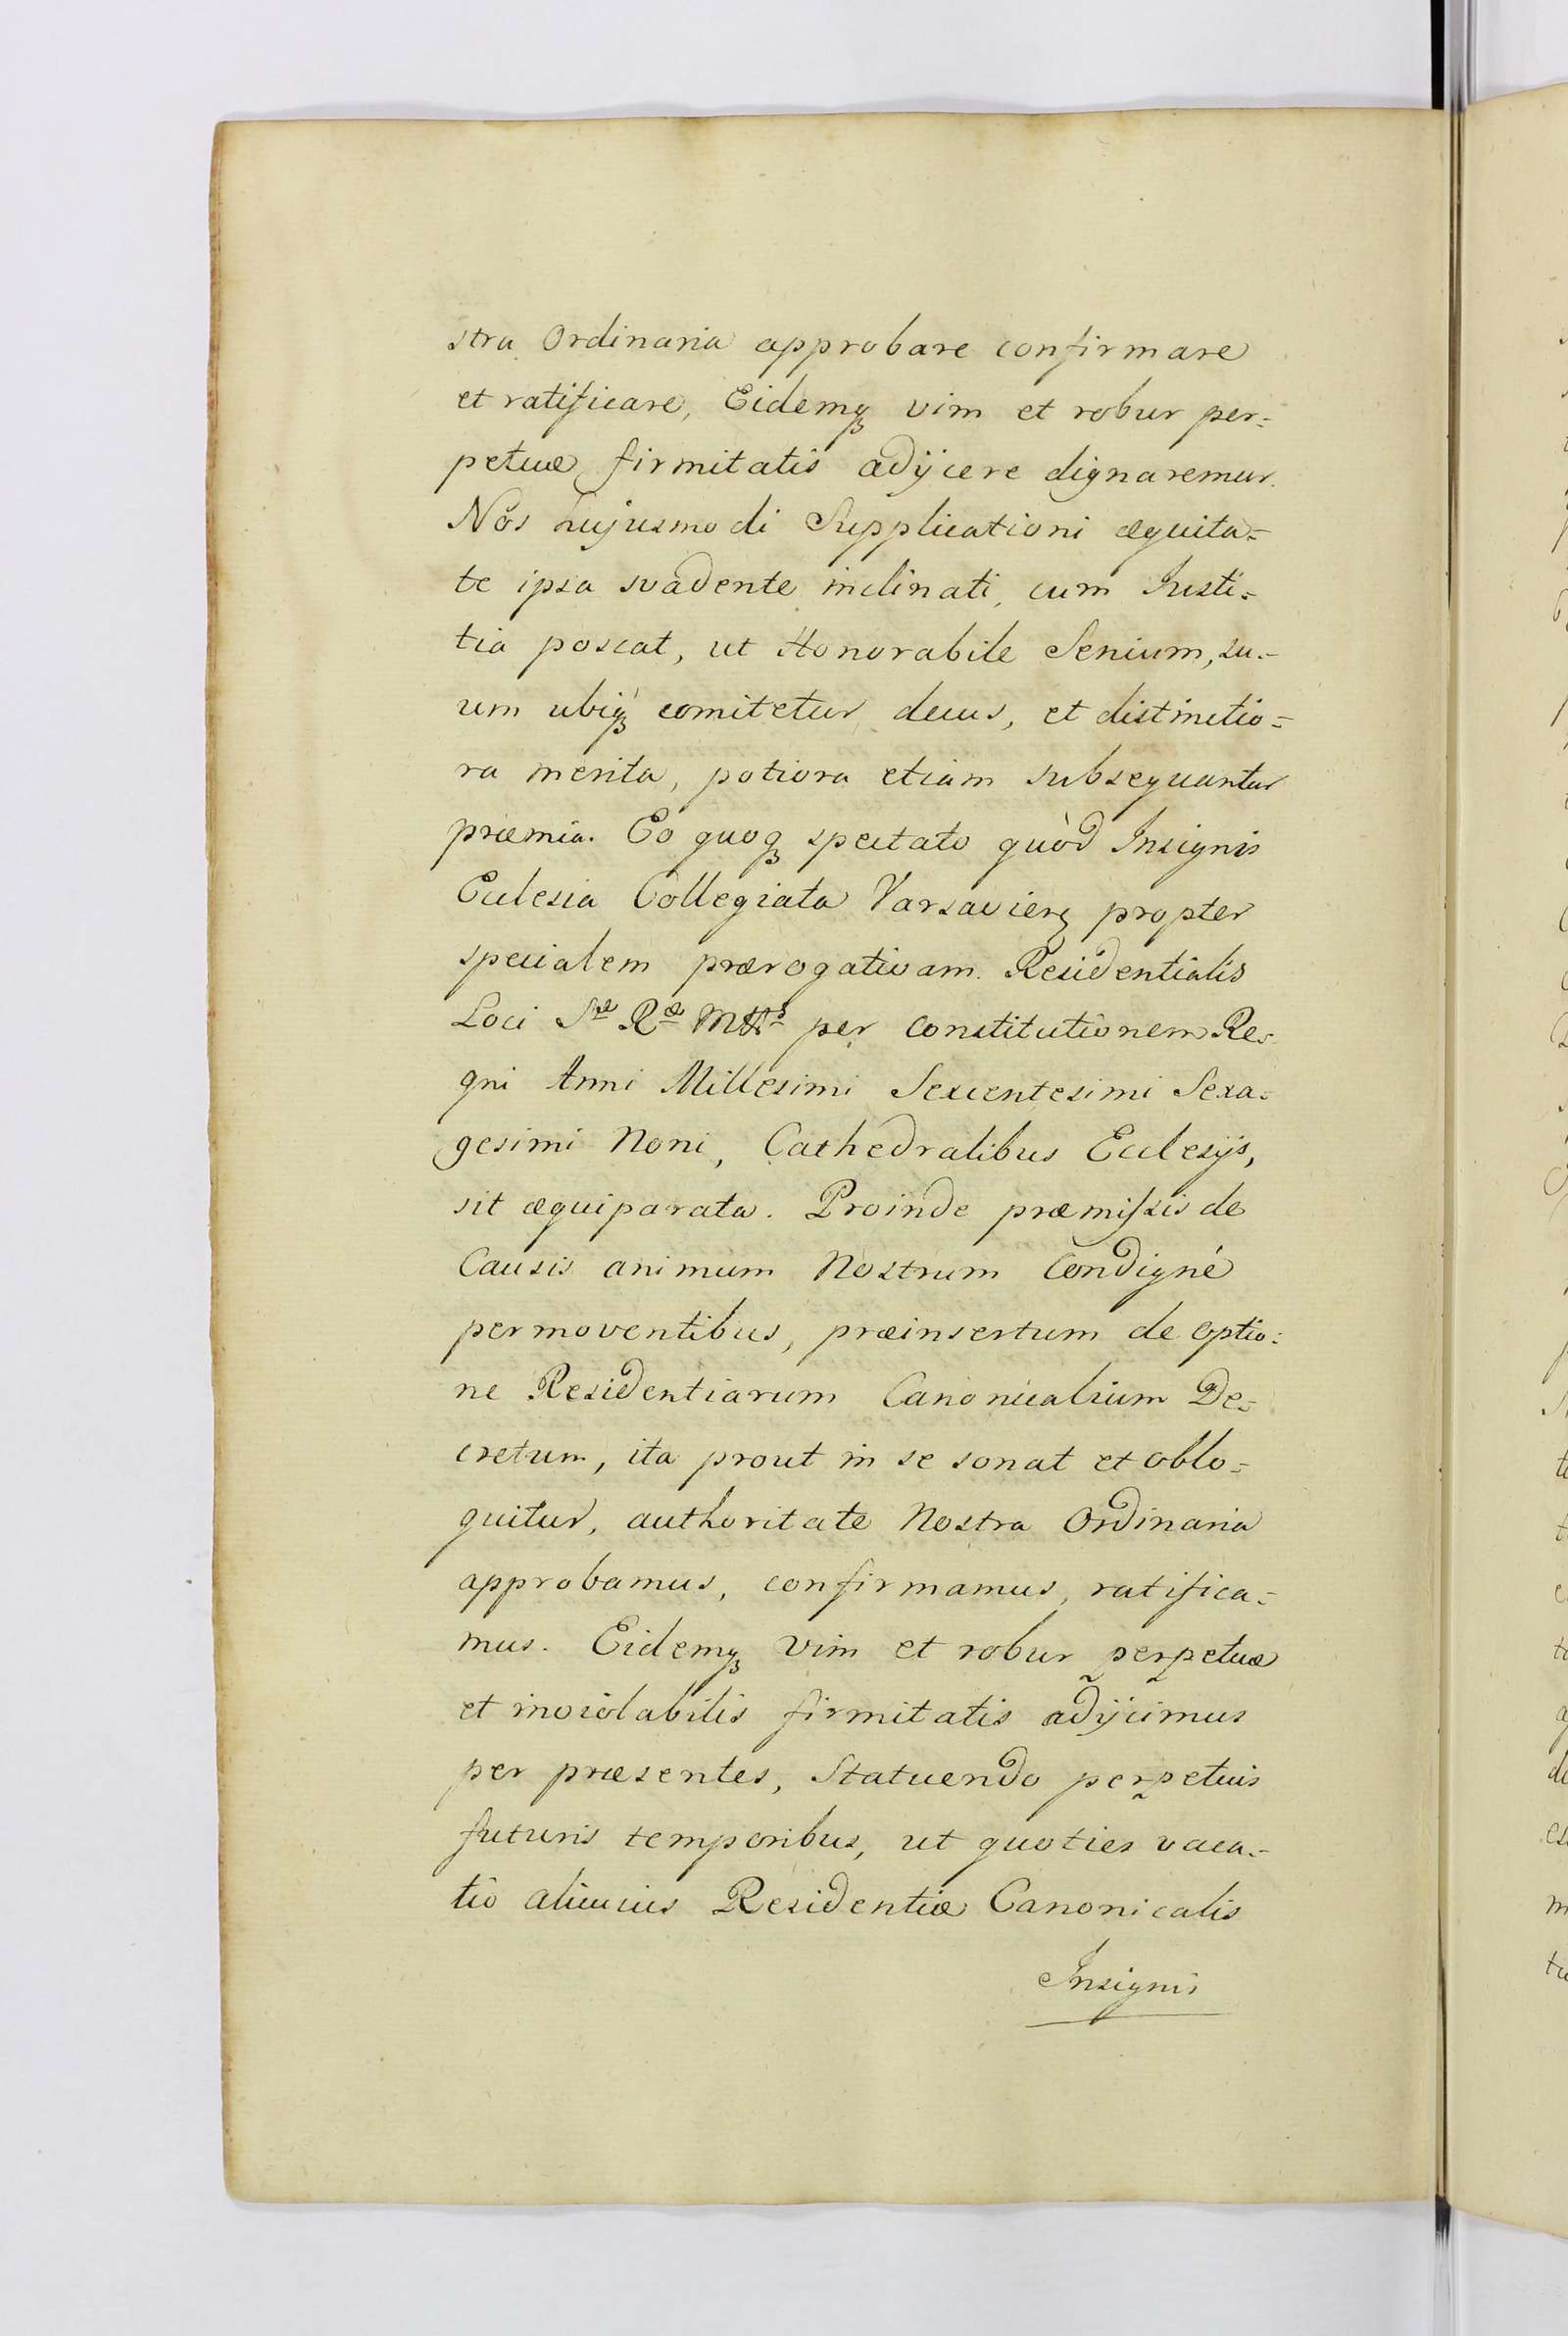 stra Ordinaria approbare confirmare
et ratificare, Eidemq₃ vim et robur per=
petuæ firmitatis adijcere dignaremur.
Nos hujusmodi Supplicationi æquita=
te ipsa svadente inclinati, cum Justi=
tia poscat, ut Honorabile Senium, su=
um ubiq₃ comitetur decus, et distinctio=
ra merita, potiora etiam subsequantur
præmia. Eo quoq₃ spectato quòd Insignis
Ecclesia Collegiata Varsavien₃ propter
specialem prærogativam Residentialis
Loci Sæ Ræ Mttis per Constitutionem Re=
gni Anni Millesimi Sexcentesimi Sexa=
gesimi Noni, Cathedralibus Ecclesijs,
sit æquiparata. Proinde præmissis de
Causis animum Nostrum Condigné
permoventibus, præinsertum de optio=
ne Residentiarum Canonicalium De=
cretum, ita prout in se sonat et oblo=
quitur, authoritate Nostra Ordinaria
approbamus, confirmamus, ratifica=
mus. Eidemq₃ vim et robur perpetuæ
et inviolabilis firmitatis adijcimus
per præsentes, Statuendo perpetuis
futuris temporibus, ut quoties vaca=
tio alicuius Residentiæ Canonicalis
Insignis